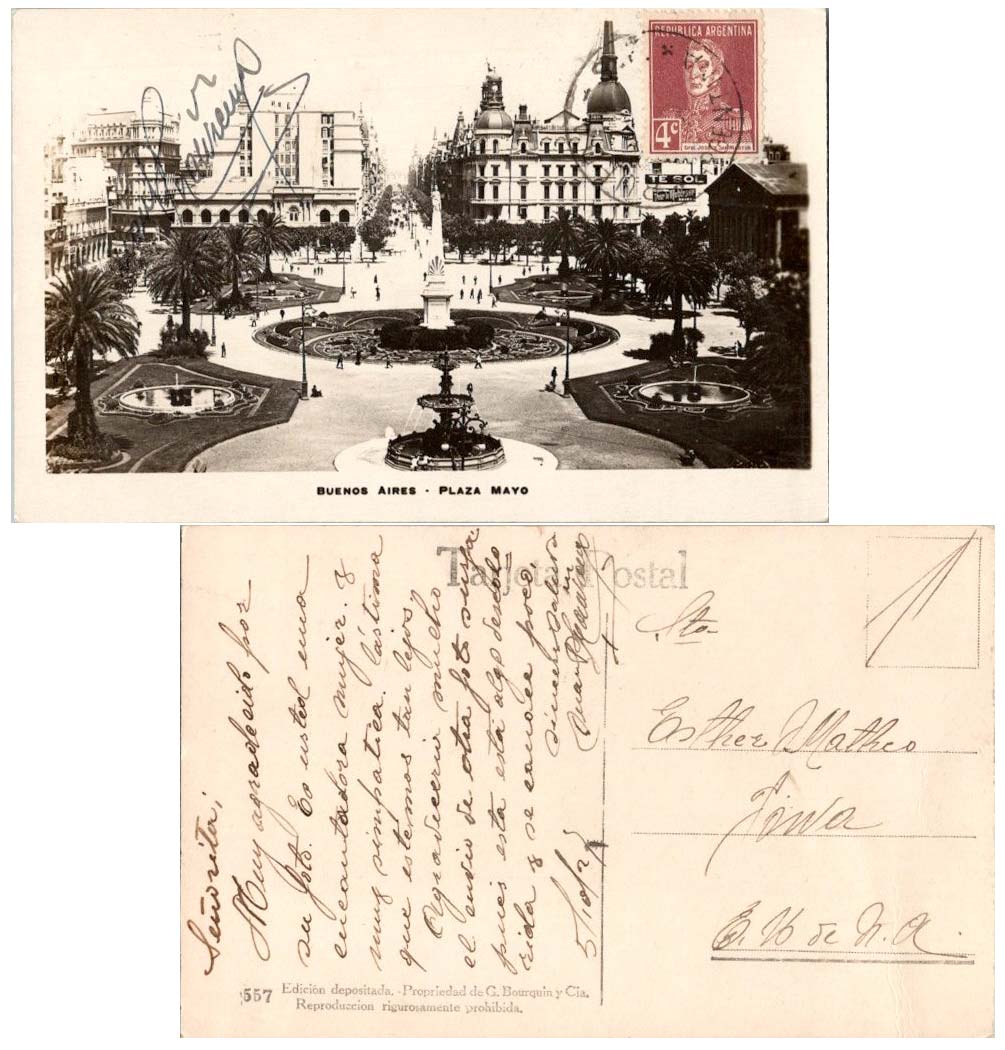 REPUBLICA ARGENTINA
4c
TE SOL
BUENOS AIRES - PLAZA MAYO
Tarjeta Postal
Señorita,
Muy agradecido por
su foto. Es usted una
encantadora mujer. y
muy simpatica. lástima
que estemos tan lejos,
Agradeceria mucho
el envio de otra foto suya
pues esta está algo descolo
rida y se conoce poco.
sinceros saluda
Juan
5/10/27
Sta.
Esther Matheo
Iowa
E. U de N. A.
557
Edición depositada. - Propriedad de G. Bourquin y Cia.
Reproduccion rigurosamente prohibida.